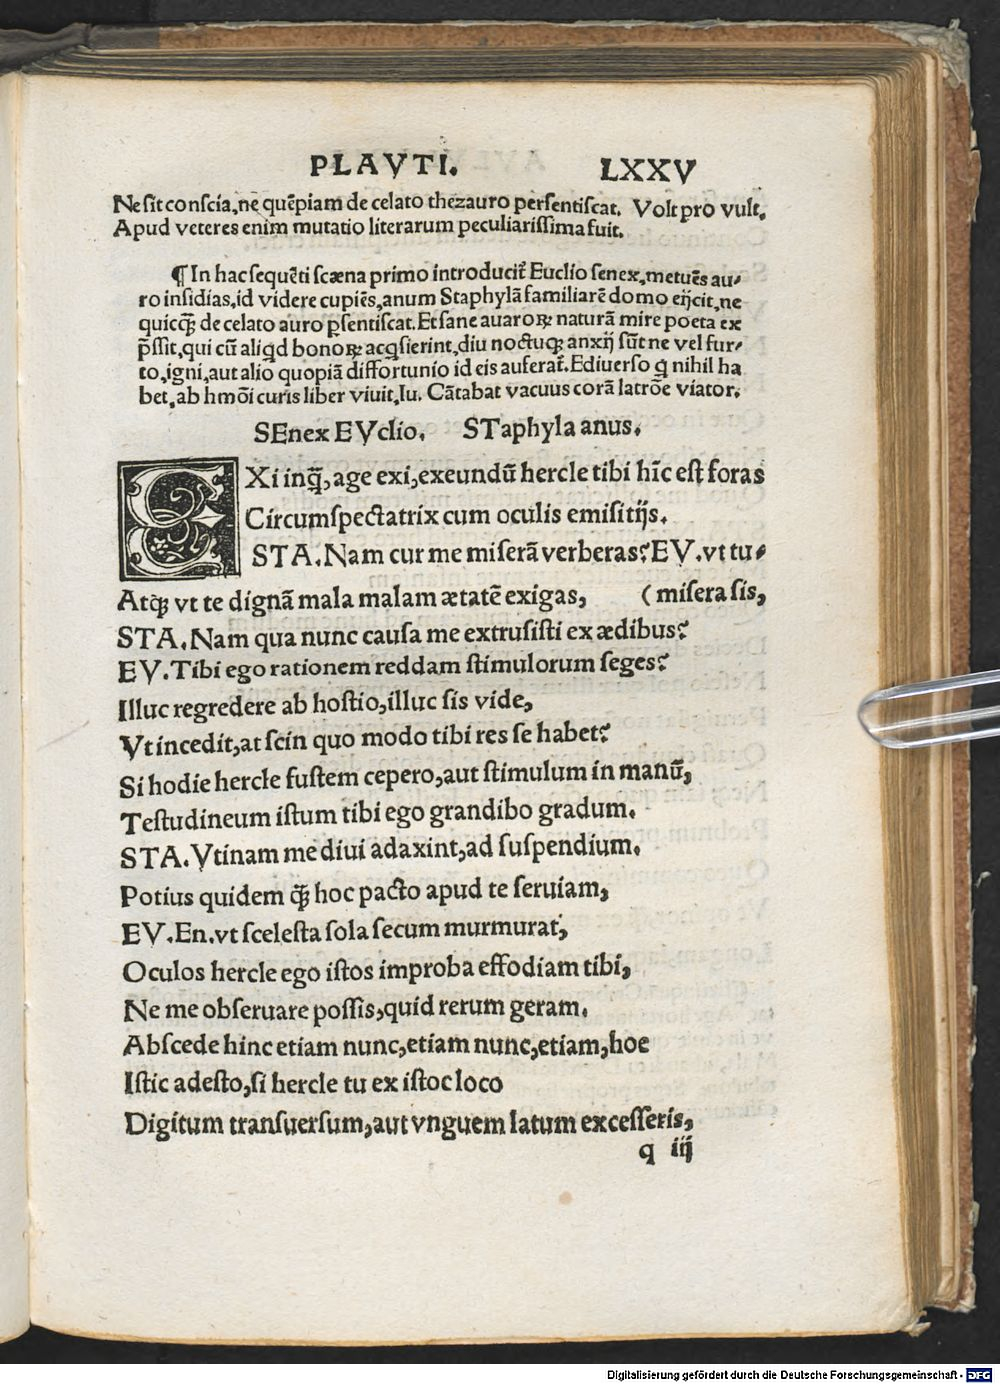 PLAVTI. LXXV
Ne sit conscia, ne quēpiam de celato thezauro persentiscat. Volt pro vult.
Apud veteres enim mutatio literarum peculiarissima fuit.
¶ In hac sequēti scæna primo introducit̃ Euclio senex, metuēs au⸗
ro insidias, id videre cupiēs, anum Staphylā familiarē domo eijcit, ne
quicq̄ꝫ de celato auro ꝑsentiscat. Et sane auaroꝝ naturā mire poeta ex
p̄ssit, qui cū aliqd bonoꝝ acqsierint, diu noctuqꝫ anxij sūt ne vel fur⸗
to, igni, aut alio quopiā diffortunio id eis auferat̃. Ediuerso q nihil ha
bet, ab hmōi curis liber viuit, Iu. Cātabat vacuus corā latrōe viator.
SEnex EVclio. STaphyla anus.
EXi inq̄, age exi, exeundū hercle tibi hīc est foras
Circumspectatrix cum oculis emisitijs.
STA. Nam cur me miserā verberas? EV. vt tu⸗
Atqꝫ vt te dignā mala malam ætatē exigas, (misera sis,
STA. Nam qua nunc causa me extrusisti ex ædibus?
EV. Tibi ego rationem reddam stimulorum seges?
Illuc regredere ab hostio, illuc sis vide,
Vt incedit, at scin quo modo tibi res se habet?
Si hodie hercle fustem cepero, aut stimulum in manū,
Testudineum istum tibi ego grandibo gradum.
STA. Vtinam me diui adaxint, ad suspendium.
Potius quidem q̄ꝫ hoc pacto apud te seruiam,
EV. En. vt scelesta sola secum murmurat,
Oculos hercle ego istos improba effodiam tibi,
Ne me obseruare possis, quid rerum geram.
Abscede hinc etiam nunc, etiam nunc, etiam, hoe
Istic adesto, si hercle tu ex istoc loco
Digitum transuersum, aut vnguem latum excesseris,
q iij
Digitalisierung gefördert durch die Deutsche Forschungsgemeinschaft - DFG